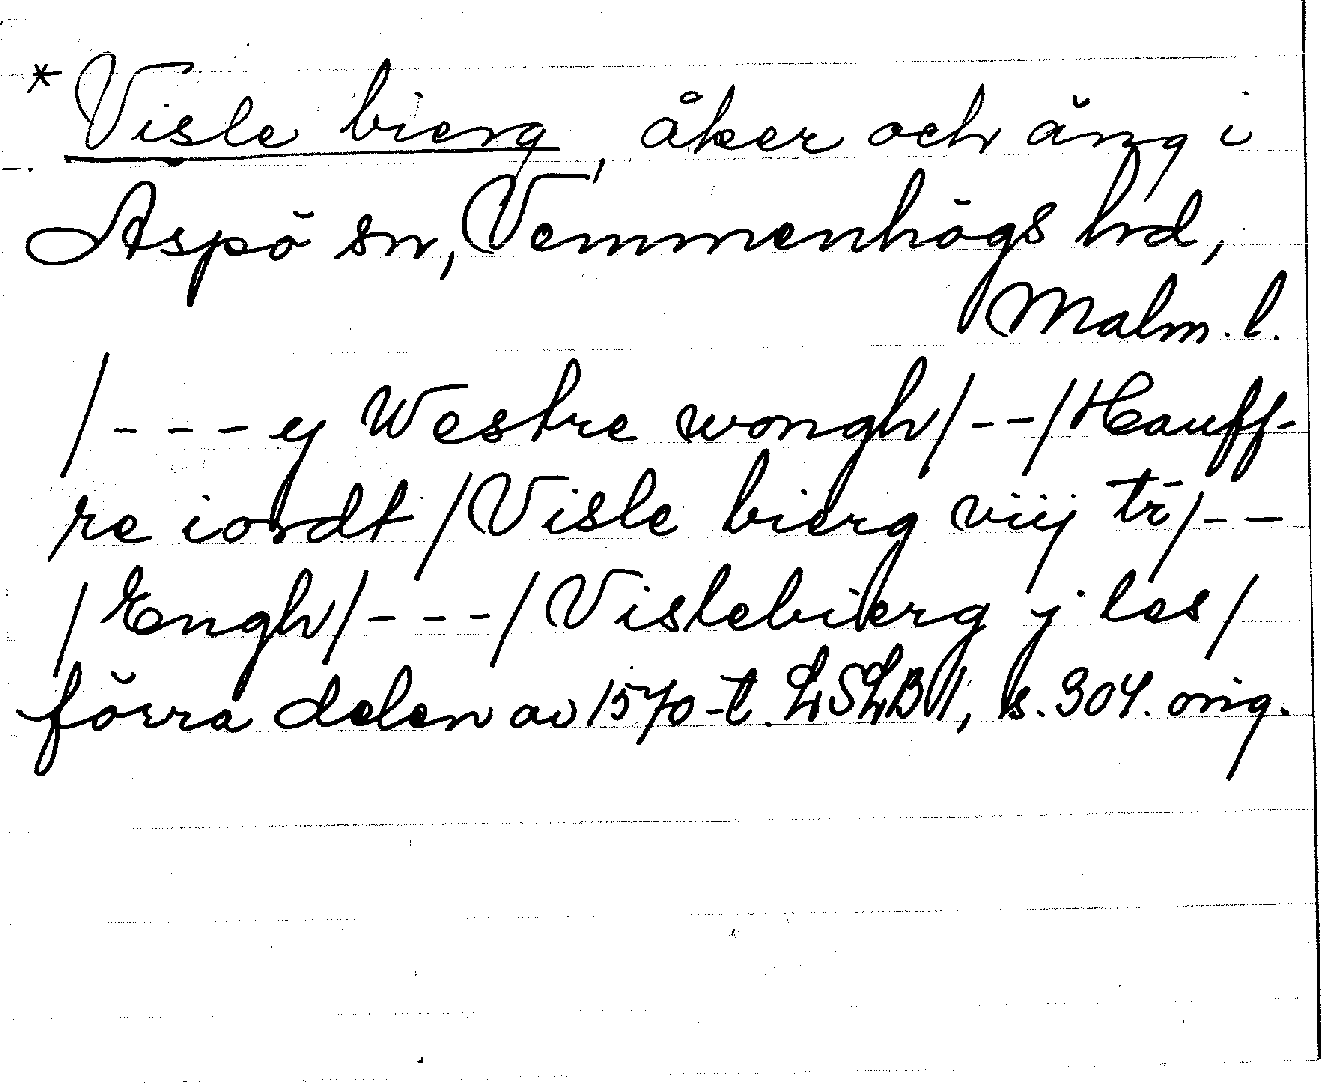 * Visle bierg, åker och äng i
Aspö sn, Vemmenhögs hrd,
Malm. l.
/- - - y Westre wongh/- -/Hauff-
re iordt /Visle bierg viij tr/- -
/Engh/- - -/Vislebierg j les/
förra delen av 1570-t. LSLB 1, s. 304. orig.